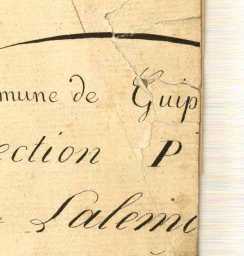 mune de Guip
ection P
Lalemo